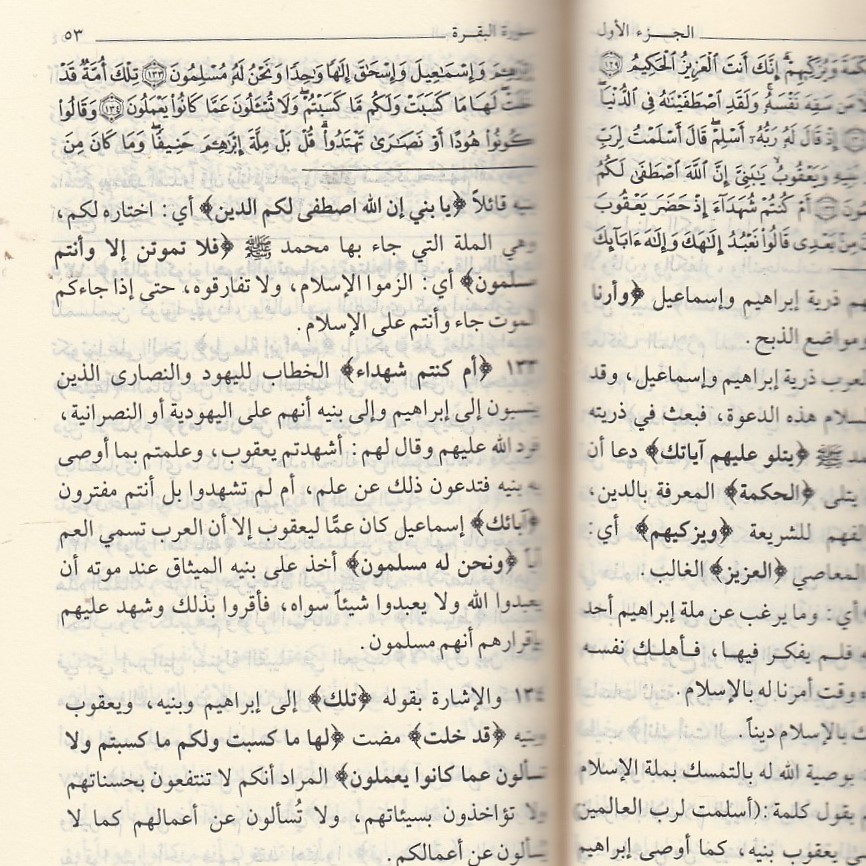 الجزء الأول
وَيُزَكِّيهِمْ إِنَّكَ أَنتَ الْعَزِيزُ الْحَكِيمُ ١٢٩
مَن سَفِهَ نَفْسَهُۥ وَلَقَدِ ٱصْطَفَيْنَٰهُ فِى ٱلدُّنْيَا
إِذْ قَالَ لَهُۥ رَبُّهُۥٓ أَسْلِمْ قَالَ أَسْلَمْتُ لِرَبِّ
وَيَعْقُوبُ يَٰبَنِىَّ إِنَّ ٱللَّهَ ٱصْطَفَىٰ لَكُمُ
أَمْ كُنتُمْ شُهَدَآءَ إِذْ حَضَرَ يَعْقُوبَ
مِنۢ بَعْدِى قَالُوا۟ نَعْبُدُ إِلَٰهَكَ وَإِلَٰهَ ءَابَآئِكَ
ذرية إبراهيم وإسماعيل ﴿وأرنا
ومواضع الذبح.
ذرية إبراهيم وإسماعيل، وقد
هذه الدعوة، فبعث في ذريته
ﷺ ﴿يتلو عليهم آياتك﴾ دعا أن
يتلى ﴿الحكمة﴾ المعرفة بالدين،
للشريعة ﴿ويزكيهم﴾ أي:
المعاصي ﴿العزيز﴾ الغالب.
أي: وما يرغب عن ملة إبراهيم أحد
فلم يفكر فيها، فأهلك نفسه
وقت أمرنا له بالإسلام.
بالإسلام ديناً.
بوصية الله له بالتمسك بملة الإسلام
يقول كلمة: (أسلمت لرب العالمين
يعقوب بنيه، كما أوصى إبراهيم
سورة البقرة ٥٣
وَإِسْمَٰعِيلَ وَإِسْحَٰقَ إِلَٰهًا وَٰحِدًا وَنَحْنُ لَهُۥ مُسْلِمُونَ ١٣٣ تِلْكَ أُمَّةٌ قَدْ
خَلَتْ لَهَا مَا كَسَبَتْ وَلَكُم مَّا كَسَبْتُمْ وَلَا تُسْـَٔلُونَ عَمَّا كَانُوا۟ يَعْمَلُونَ ١٣٤ وَقَالُوا۟
كُونُوا۟ هُودًا أَوْ نَصَٰرَىٰ تَهْتَدُوا۟ قُلْ بَلْ مِلَّةَ إِبْرَٰهِۦمَ حَنِيفًا وَمَا كَانَ مِنَ
بنيه قائلاً ﴿يا بني إن الله اصطفى لكم الدين﴾ أي: اختاره لكم،
وهي الملة التي جاء بها محمد ﷺ ﴿فلا تموتن إلا وأنتم
مسلمون﴾ أي: الزموا الإسلام، ولا تفارقوه، حتى إذا جاءكم
الموت جاء وأنتم على الإسلام.
١٣٣ ﴿أم كنتم شهداء﴾ الخطاب لليهود والنصارى الذين
ينسبون إلى إبراهيم وإلى بنيه أنهم على اليهودية أو النصرانية،
فرد الله عليهم وقال لهم: أشهدتم يعقوب، وعلمتم بما أوصى
به بنيه فتدعون ذلك عن علم، أم لم تشهدوا بل أنتم مفترون
﴿آبائك﴾ إسماعيل كان عمًّا ليعقوب إلا أن العرب تسمي العم
أباً ﴿ونحن له مسلمون﴾ أخذ على بنيه الميثاق عند موته أن
يعبدوا الله ولا يعبدوا شيئاً سواه، فأقروا بذلك وشهد عليهم
بإقرارهم أنهم مسلمون.
١٣٤ والإشارة بقوله ﴿تلك﴾ إلى إبراهيم وبنيه، ويعقوب
وبنيه ﴿قد خلت﴾ مضت ﴿لها ما كسبت ولكم ما كسبتم ولا
تسألون عما كانوا يعملون﴾ المراد أنكم لا تنتفعون بحسناتهم
ولا تؤاخذون بسيئاتهم، ولا تُسألون عن أعمالهم كما لا
يسألون عن أعمالكم.